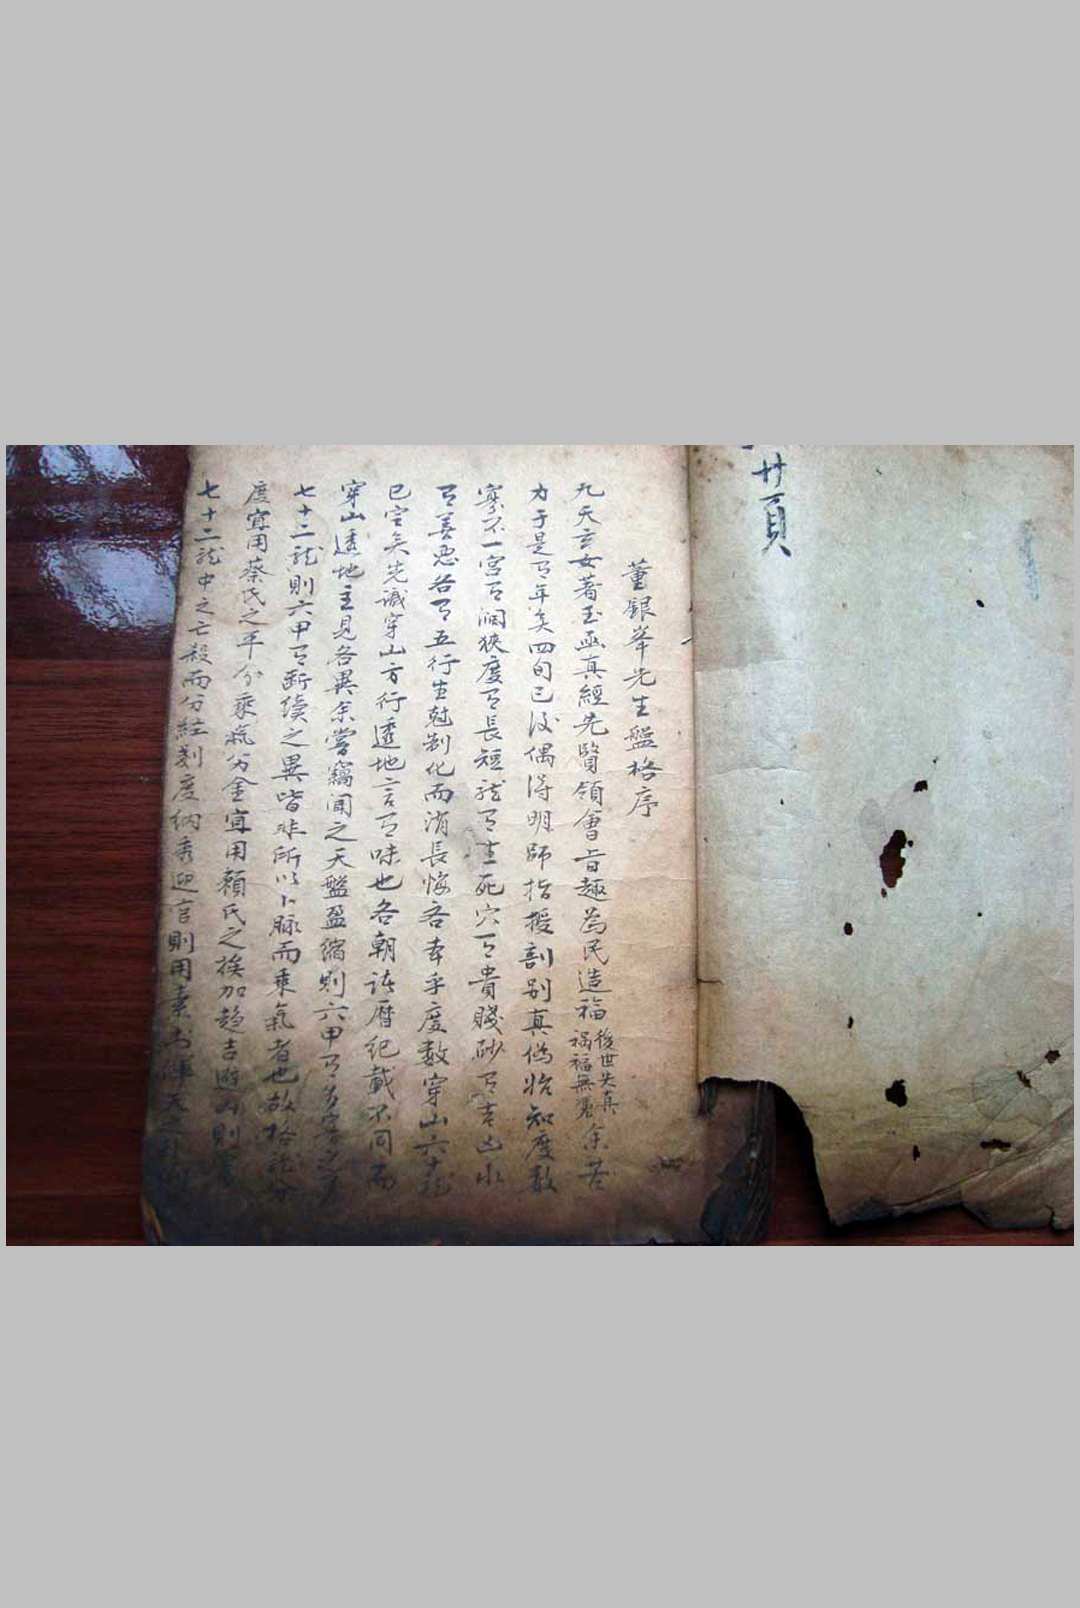 廿頁
董銀峯先生盤格序
九天玄女著玉函真經先賢領會旨趣為民造福後世失真禍福無憑余苦
力于是有年矣四旬已後偶得明師指援剖别真僞始知度数
寥不一宮有濶狹度有長短龍有生死穴有貴賤砂有吉凶水
有善恶各有五行生尅制化而消長悔吝本乎度数穿山六十龍
已定矣先識穿山方行透地言有味也各朝諸曆紀載不同而
穿山透地主見各異余嘗竊聞之天盤盈縮則六甲有
七十二龍則六甲有断續之異皆非所以卜脉而乘氣者也故格龍分
度宜用蔡氏之平分乘氣分金宜用賴氏之挨加趋吉避凶則
七十二龍中之亡殺而分經刻度納秀迎官則用